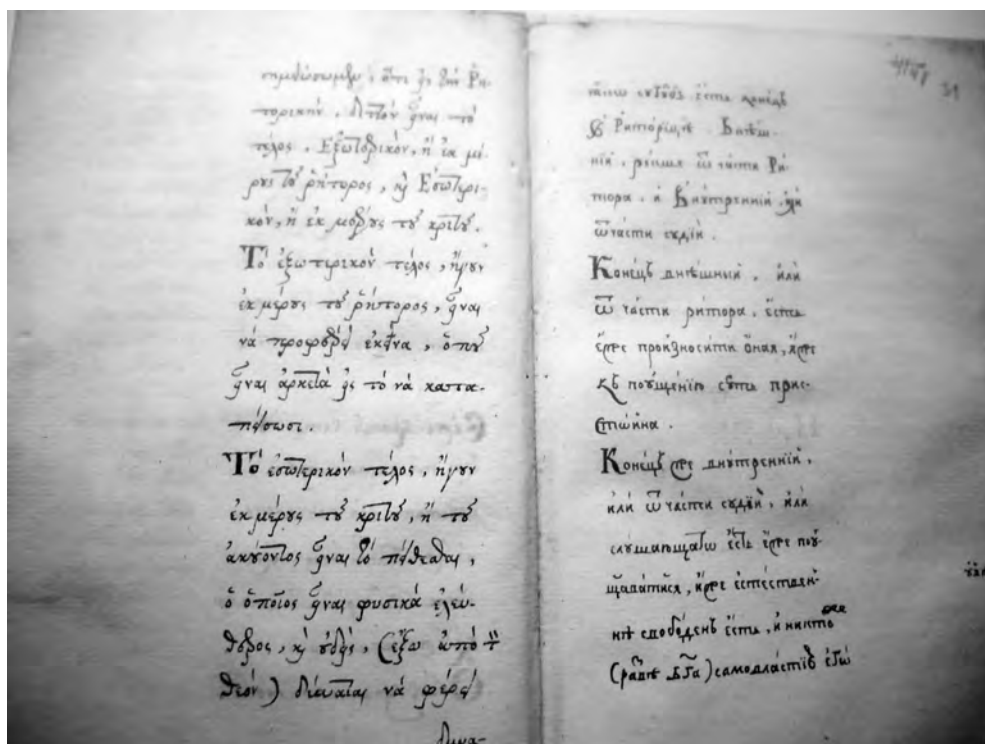 σημειώσωμεν, ὅτι εἰς τὴν Ρη-
τορικὴν, διττὸν εἶναι τὸ
τέλος, Ἐξωτερικὸν, ἢ ἐκ μέ-
ρους τοῦ ῥήτορος, καὶ Ἐσωτερι-
κὸν, ἢ ἐκ μέρους τοῦ κριτοῦ.
Τὸ ἐξωτερικὸν τέλος, ἤγουν
ἐκ μέρους τοῦ ῥήτορος, εἶναι
νὰ προσφέρῃ ἐκεῖνα, ὁποῦ
εἶναι ἀρκετὰ εἰς τὸ νὰ κατα-
πείσωσι.
Τὸ ἐσωτερικὸν τέλος, ἤγουν
ἐκ μέρους τοῦ κριτοῦ, ἢ τοῦ
ἀκούοντος εἶναι τὸ πείθεσθαι,
ὁ ὁποῖος εἶναι φυσικὰ ἐλεύ-
θερος, καὶ οὐδεὶς, (ἔξω ἀπὸ τ
θεὸν) δύναται νὰ φέρῃ
δυνα-
31
сугубъ есть конецъ
Риторіцѣ. Внѣш-
ній, ѿ части Ри-
тора. и Внутренній, или
ѿ части судіи.
Конецъ внѣшный, или
ѿ части ритора, есть
еже произносити оная, яже
къ поущенію суть прис-
тойна.
Конецъ же внутренній,
или ѿ части судіи, или
слушающагѡ есть еже поу-
щаватися, иже естествен-
нѣ свободенъ есть, и никто
(развѣ бга) самовластіѧ егѡ